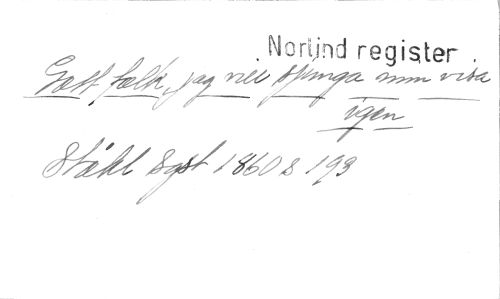 Norlind register
Gott folk, jag vill sjunga min visa
igen
Ståhl Sgst 1860 s 193